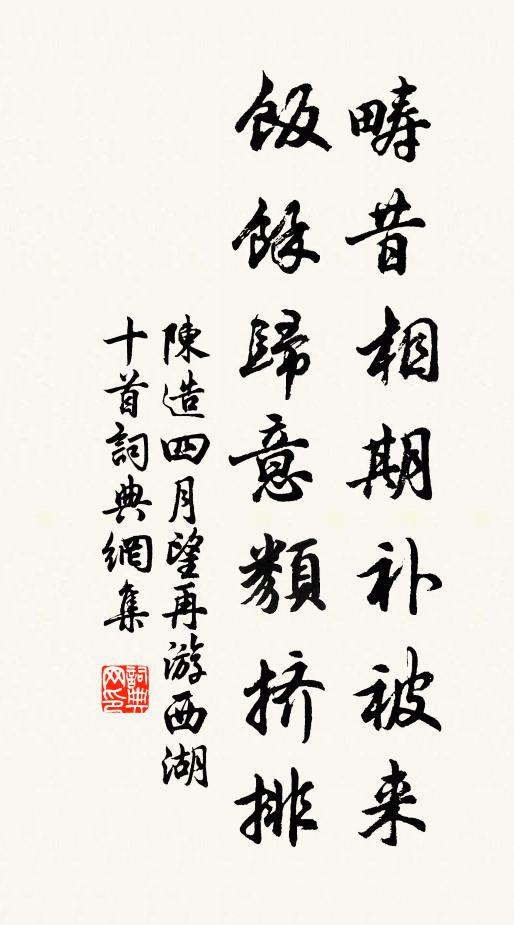 畴昔相期补被来
飯餘歸意類挤排
陳造四月望再游西湖
十首詞典網集
詞典网印